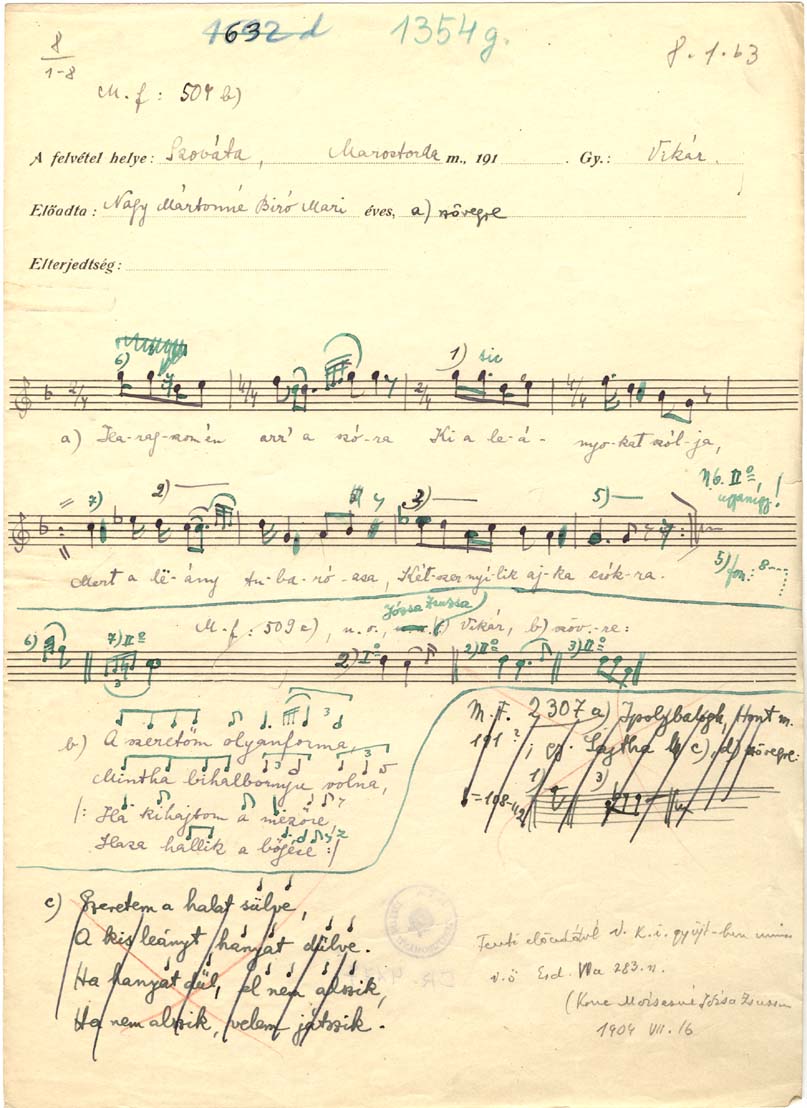 1632 d 1354g.
8
1-8
8.1.b3
M.f: 509 b)
A felvétel helye: Szováta, Marostorda m., 191 . Gy.: Vikár.
Előadta: Nagy Mártonné Biró Mari éves, a) szövegre
Elterjedtség:
6) 1) sic
2/4 4/4 2/4 4/4
a) Ha-rag-szom én arr' a szó-ra Ki a le-á- nyo-kat szól-ja,
7) 2) 2) 5)
N.b. IIº, ugyanígy!
Mert a lë-ány tu-ba-ró-zsa, Két-szer nyí-lik aj-ka csók-ra.
5) fon: 8
Józsa Zsuzsa
M.f: 509 c), u.o., Vikár, b) szöv.-re:
6) 7) IIº 2) Iº 2) IIº 3) IIº
3
b) A szeretőm olyanforma,
Mintha bihalbornyu volna,
/: Ha kihajtom a mezőre
Haza hallik a bőgése :/
M.F. 2307 a) Ipolybalogh, Hont m.
191?; gy. Lajtha b) c), d) szövegre:
1) 3)
=108-112
c) Szeretem a halat sülve,
A kis leányt hanyat dülve.
Ha hanyat dül, el nem alszik,
Ha nem alszik, velem játszik.
Fenti előadótól V. K. i. gyüjt-ben nincs
v.ö Erd. VII a 283. n.
(Kove Mózsesné Józsa Zsuzsa
1904 VII. 16